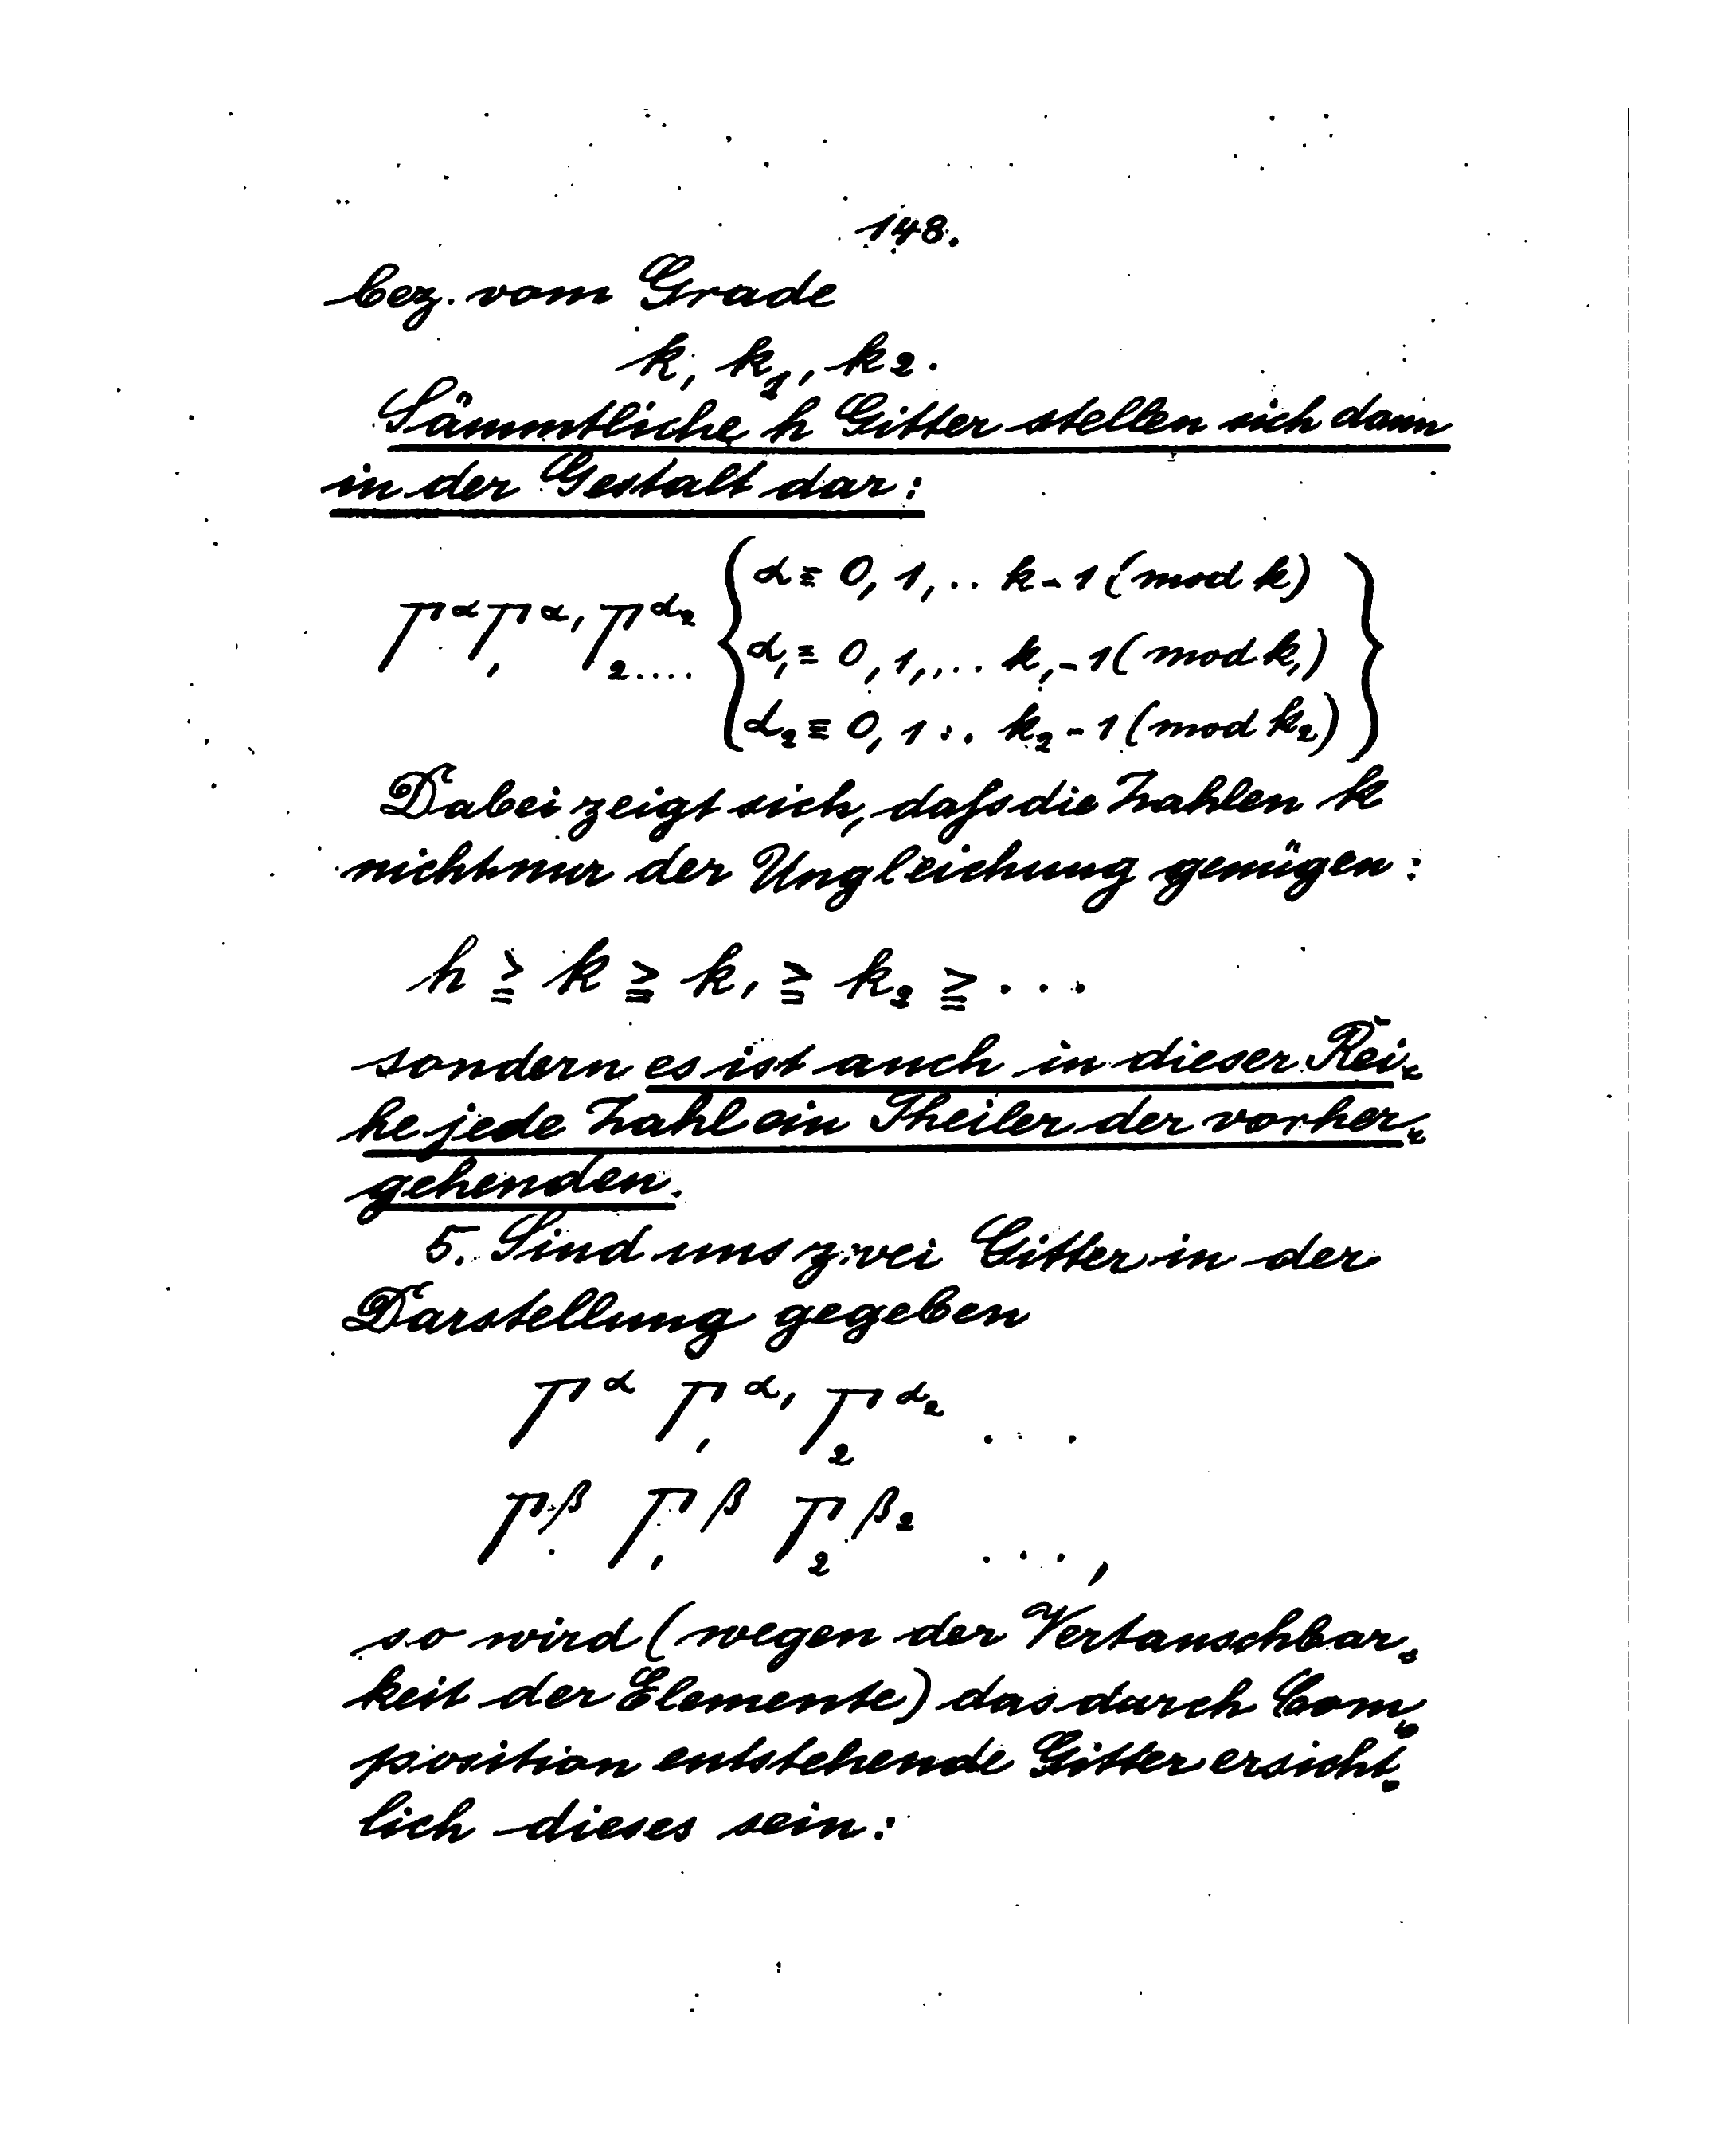 148.
bez. vom Grade
k, k₁, k₂.
Sämmtliche h Gitter stellen sich dann
in der Gestalt dar:
Γ^α Γ₁^α₁ Γ₂^α₂ .... { α ≡ 0, 1, .. k-1 (mod k)
α₁ ≡ 0, 1, .. k₁-1 (mod k₁)
α₂ ≡ 0, 1 .. k₂-1 (mod k₂) }
Dabei zeigt sich, daſs die Zahlen k
nicht nur der Ungleichung genügen:
h ≧ k ≧ k₁ ≧ k₂ ≧ ...
sondern es ist auch in dieser Rei-
he jede Zahl ein Theiler der vorher-
gehenden.
5. Sind uns zwei Gitter in der
Darstellung gegeben
Γ^α Γ₁^α₁ Γ₂^α₂ ...
Γ^β Γ₁^β Γ₂^β₂ ...,
so wird (wegen der Vertauschbar-
keit der Elemente) das durch Com-
position entstehende Gitter ersicht-
lich dieses sein: